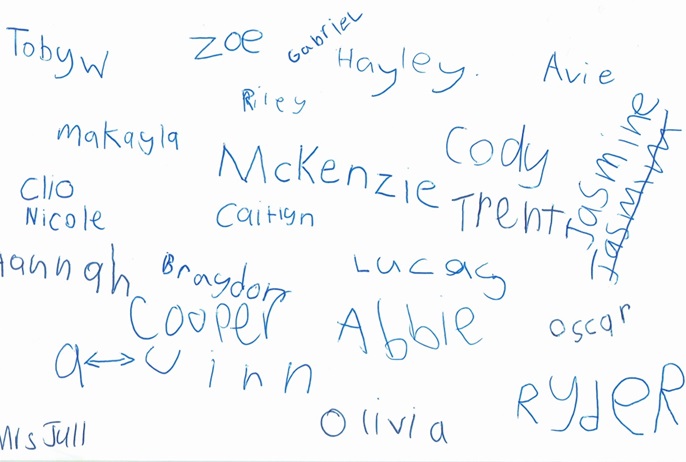 Toby W
Zoe
Gabriel
Hayley.
Avie
Riley
Makayla
McKenzie
Cody
Jasmine
Clio
Nicole
Caitlyn
Trent
Hannah
Braydon
Lucas
Cooper
Abbie
Oscar
Quinn
Ryder
Mrs Jull
Olivia